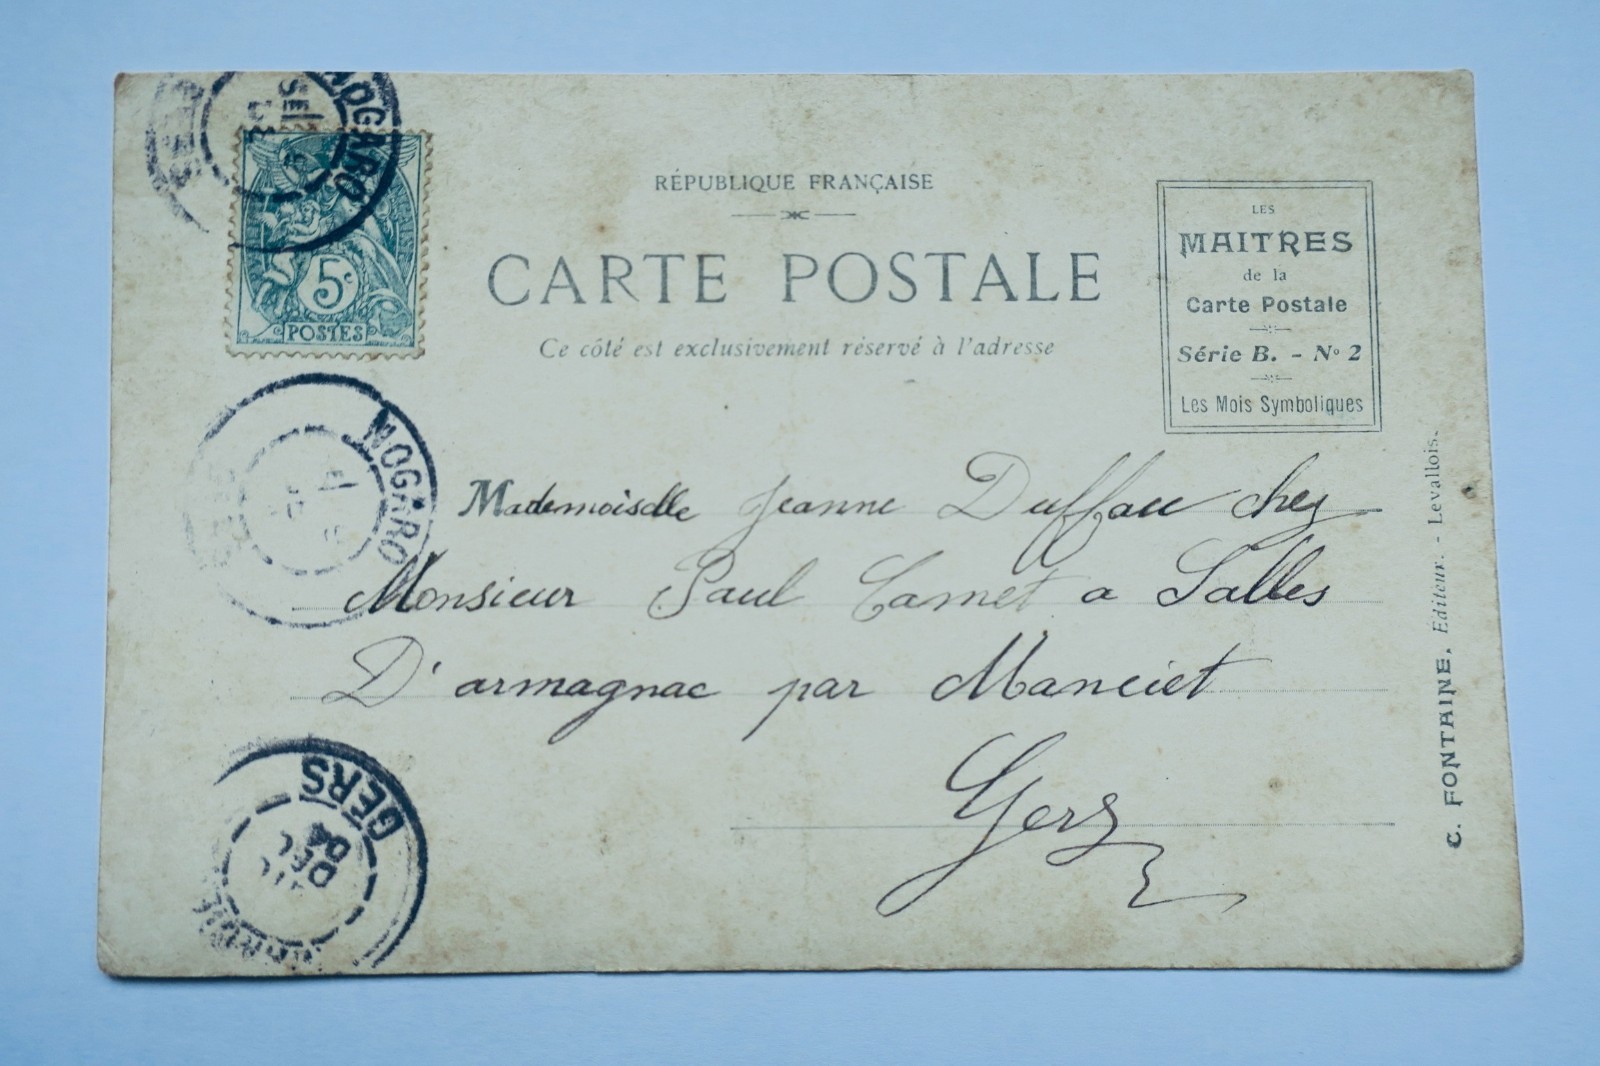 NOGARO
5c
POSTES
RÉPUBLIQUE FRANÇAISE
CARTE POSTALE
Ce côté est exclusivement réservé à l'adresse
LES
MAITRES
de la
Carte Postale
Série B. - No 2
Les Mois Symboliques
NOGARO
Mademoiselle Jeanne Duffau chez
Monsieur Paul Camet a Salles
D'armagnac par Manciet
Gers
GERS
DEC
04
C. FONTAINE, Éditeur. - Levallois.